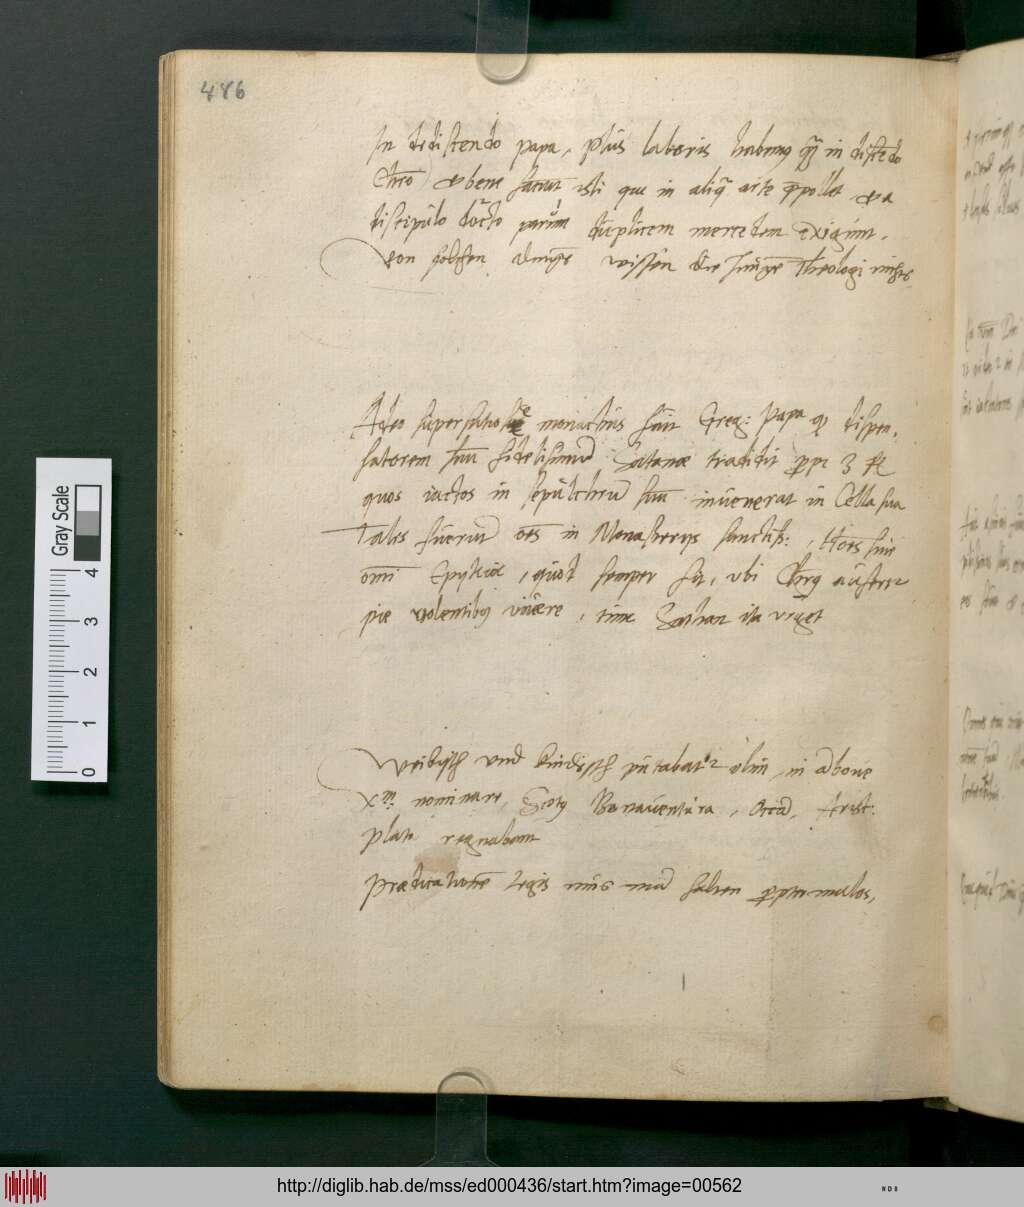 486
In dediscendo papa, plus laboris habemus quam in discendo
Christo et bene faciunt isti qui in aliqua arte pollent et a
discipulo docto parum duplicem mercedem exigunt.
von solchen dingen wissen die Junge Theologi nichts
Adeo superstitiose monachus fuit Greg: Papa qui dispen-
satorem suum fidelissimum Satanae tradidit propter 3 fl
quos iactos in sepulchrum suum invenerat in Cella sua
Tales fuerunt omnes in Monasterys sanctiss:, Homines sine
omni, quod semper fit, ubi Christus aufertur
pie volentibus vivere, tunc Sathan ita urget
Weibisch und kindisch putabatur olim, in
Xm nominare, Scotus Bonaventura, Occam, Arist:
Plato regnabant
Praedicatione Legis saltem propter malos,
Gray Scale
4
3
2
1
0
http://diglib.hab.de/mss/ed000436/start.htm?image=00562